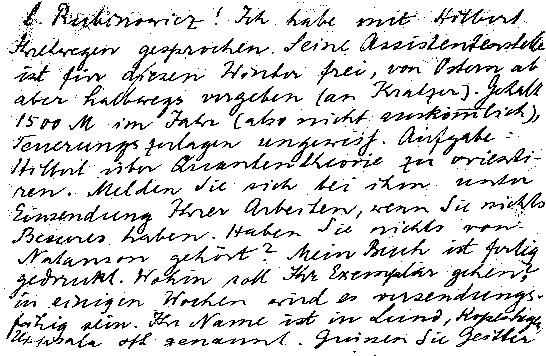 L. Rubinowicz! Ich habe mit Hilbert
Ihretwegen gesprochen. Seine Assistentenstelle
ist für diesen Winter frei, von Ostern ab
aber halbwegs vergeben (an Kratzer). Gehalt
1500 M im Jahr (also nicht auskömlich),
Teuerungszulagen ungewiss. Aufgabe:
Hilbert über Quantentheorie zu orientie-
ren. Melden Sie sich bei ihm unter
Einsendung Ihrer Arbeiten, wenn Sie nichts
Besseres haben. Haben Sie nichts von
Natanson gehört? Mein Buch ist fertig
gedruckt. Wohin soll Ihr Exemplar gehen?
in einigen Wochen wird es versendungs-
fähig sein. Ihr Name ist in Lund, Kopenhagen,
Upsala oft genannt. Grüssen Sie Geitler